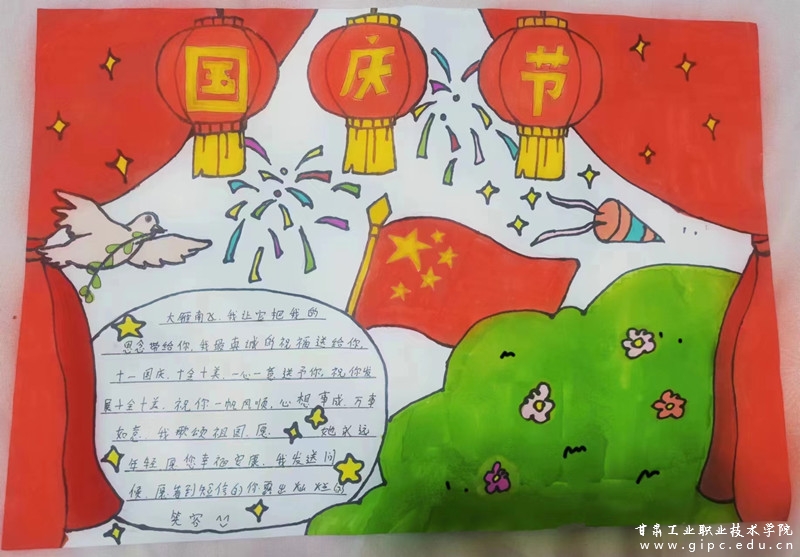 国 庆 节
大雁南飞,我让它把我的
思念带给你,我最真诚的祝福送给你,
十一国庆、十全十美,一心一意送予你,祝你发
展十全十美,祝你一帆风顺,心想事成,万事
如意,我歌颂祖国,愿 她永远
年轻,愿您幸福安康,我发送问
候,愿看到短信的你露出灿烂的
笑容
甘肃工业职业技术学院
www.gipc.edu.cn